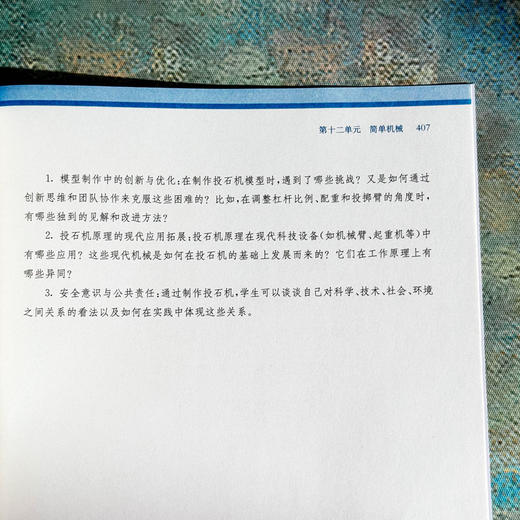 第十二单元 简单机械 407
1. 模型制作中的创新与优化:在制作投石机模型时,遇到了哪些挑战? 又是如何通过
创新思维和团队协作来克服这些困难的? 比如,在调整杠杆比例、配重和投掷臂的角度时,
有哪些独到的见解和改进方法?
2. 投石机原理的现代应用拓展:投石机原理在现代科技设备(如机械臂、起重机等)中
有哪些应用? 这些现代机械是如何在投石机的基础上发展而来的? 它们在工作原理上有
哪些异同?
3. 安全意识与公共责任:通过制作投石机,学生可以谈谈自己对科学、技术、社会、环境
之间关系的看法以及如何在实践中体现这些关系。